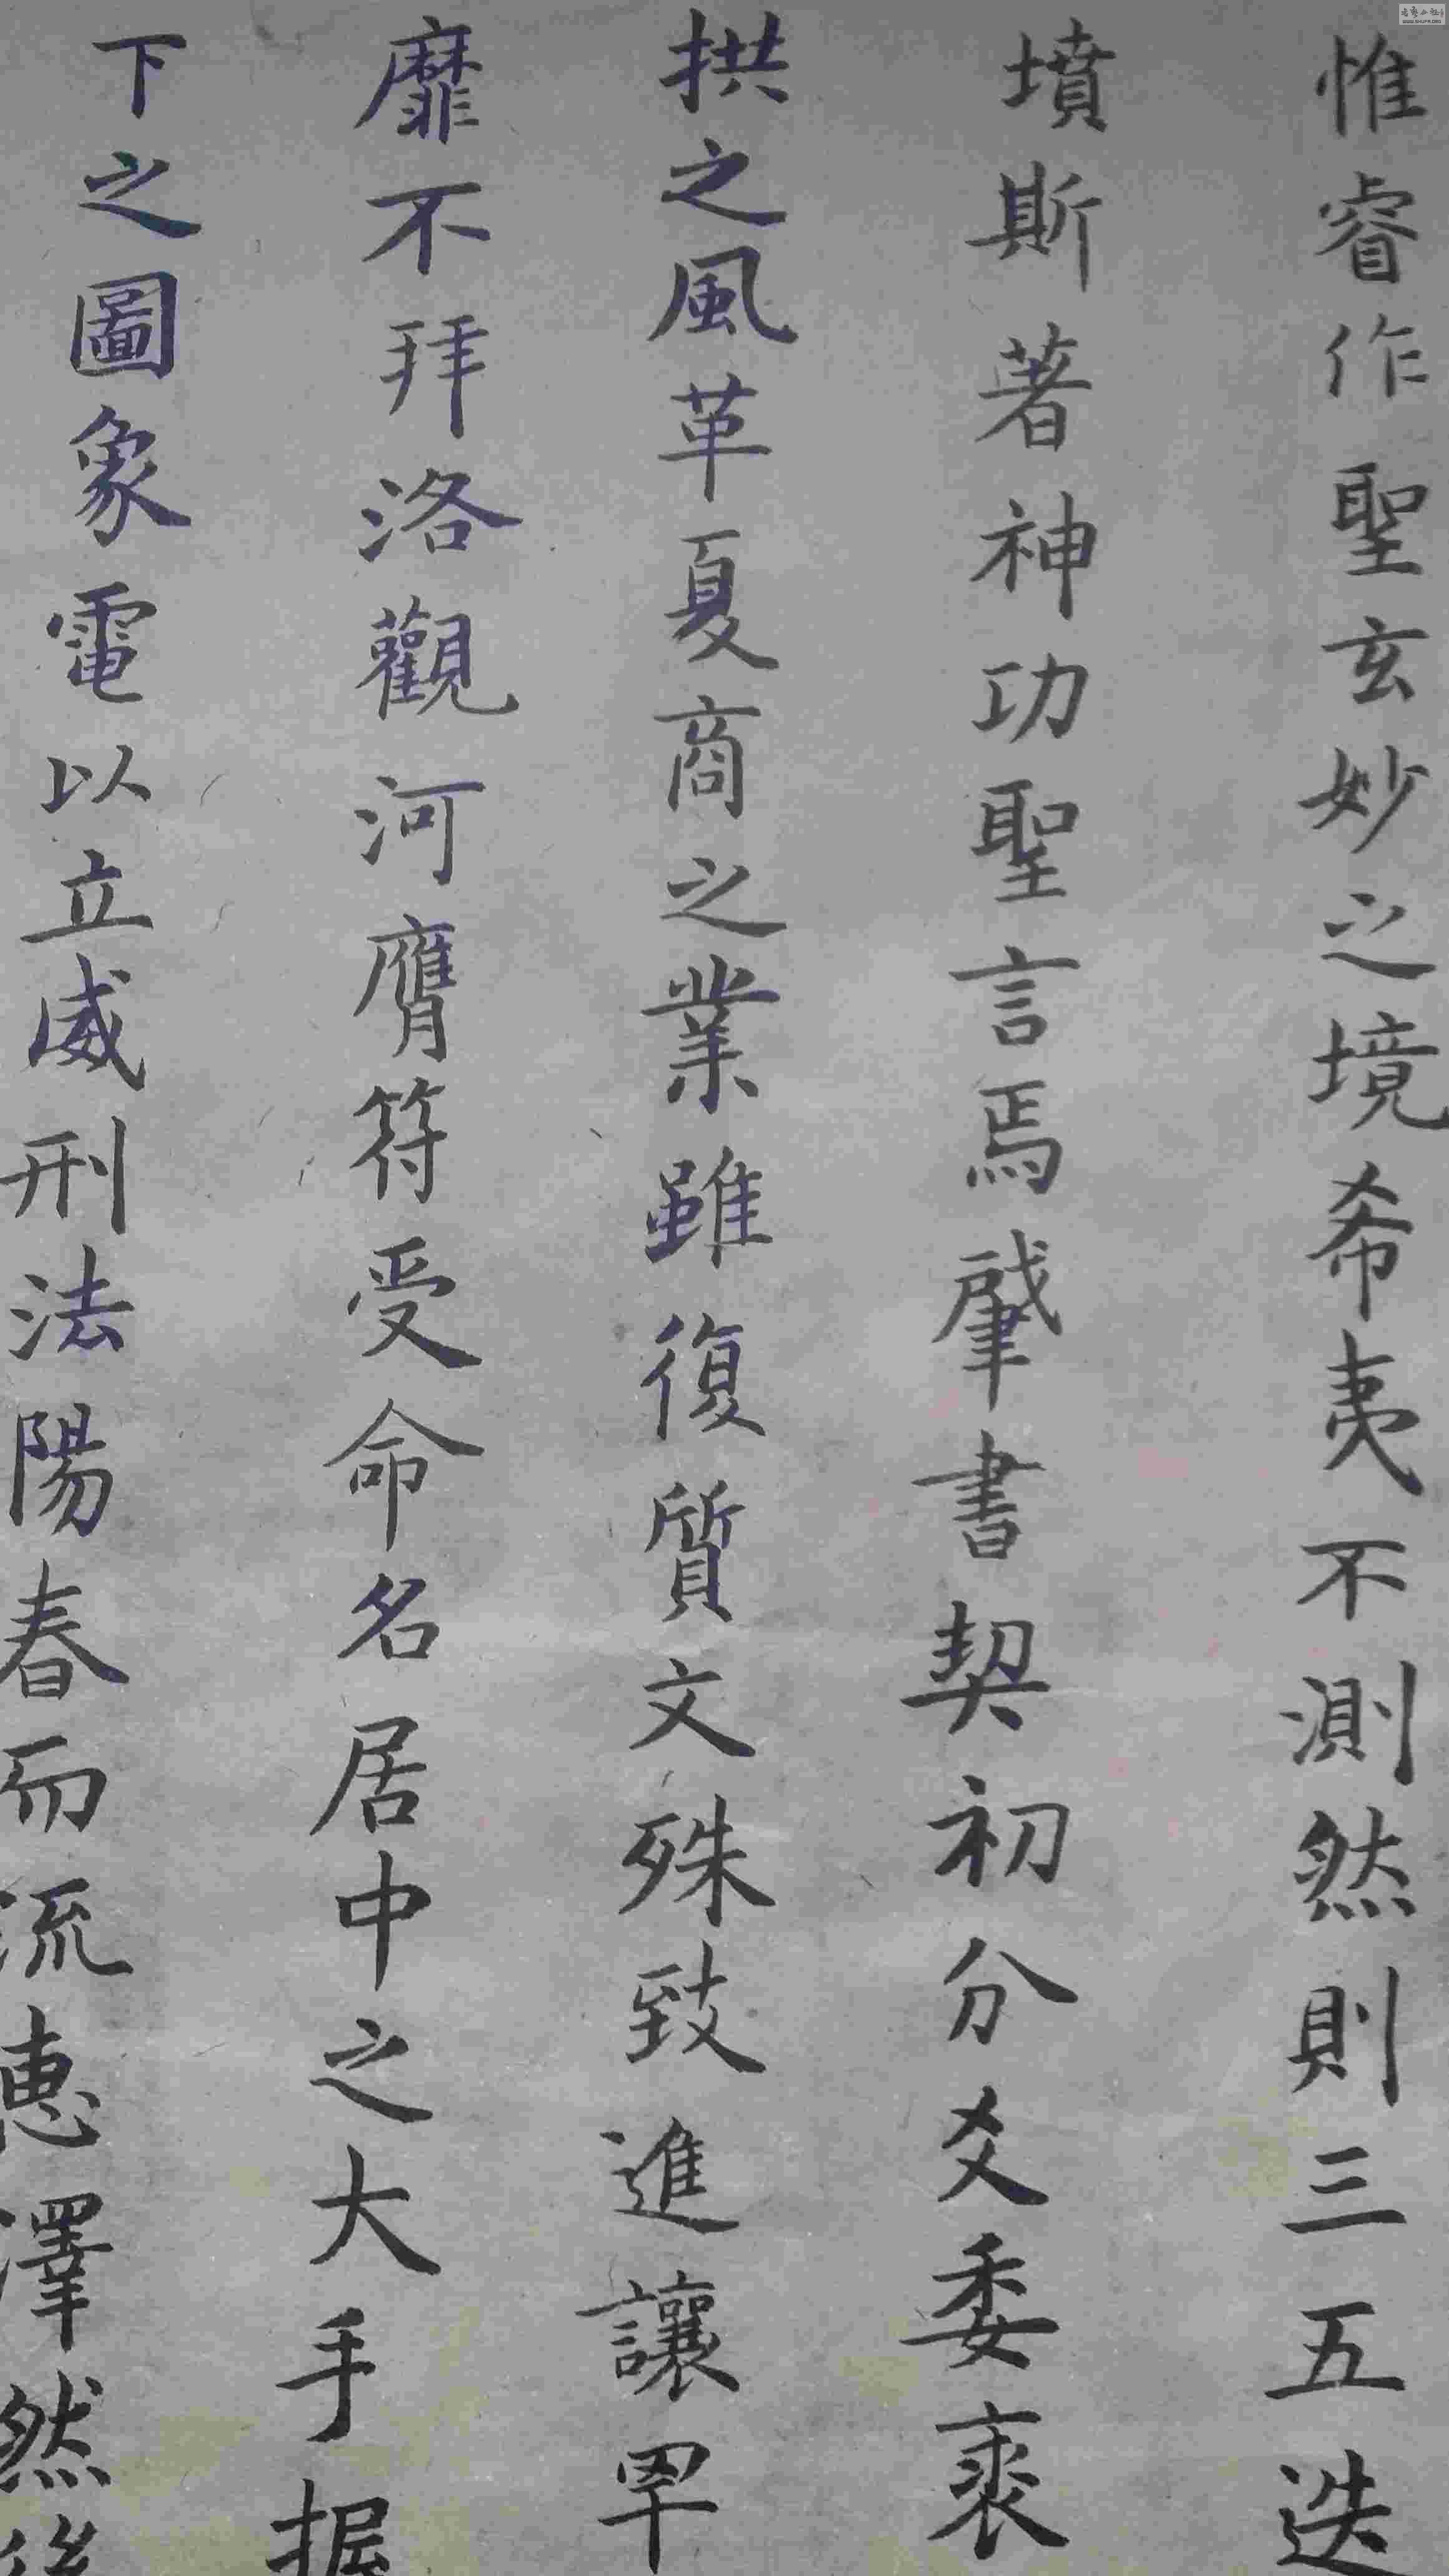 惟睿作聖玄妙之境希夷不測然則三五迭
墳斯著神功聖言焉肈書契初分爻委裘
拱之風革夏商之業雖復質文殊致進讓罕
靡不拜洛觀河膺符受命名居中之大手握
下之圖象電以立威刑法陽春而流惠澤然後